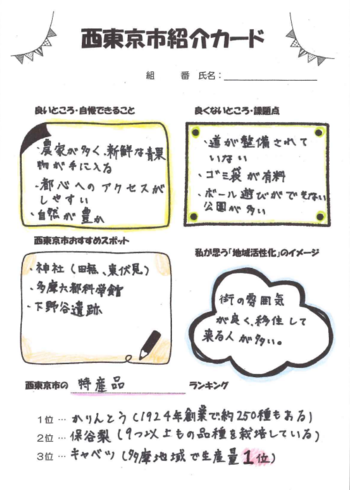 西東京市紹介カード
組 番 氏名：
良いところ・自慢できること
・農家が多く、新鮮な青果
物が手に入る
・都心へのアクセスが
しやすい
・自然が豊か
良くないところ・課題点
・道が整備されて
いない
・ゴミ袋が有料
・ボール遊びができない
公園が多い
西東京市おすすめスポット
・神社（田無、東伏見）
・多摩六都科学館
・下野谷遺跡
私が思う「地域活性化」のイメージ
街の雰囲気
が良く、移住して
来る人が多い。
西東京市の 特産品 ランキング
1位 … かりんとう（1924年創業で約250種もある）
2位 … 保谷梨（9つ以上もの品種を栽培している）
3位 … キャベツ（多摩地域で生産量1位）